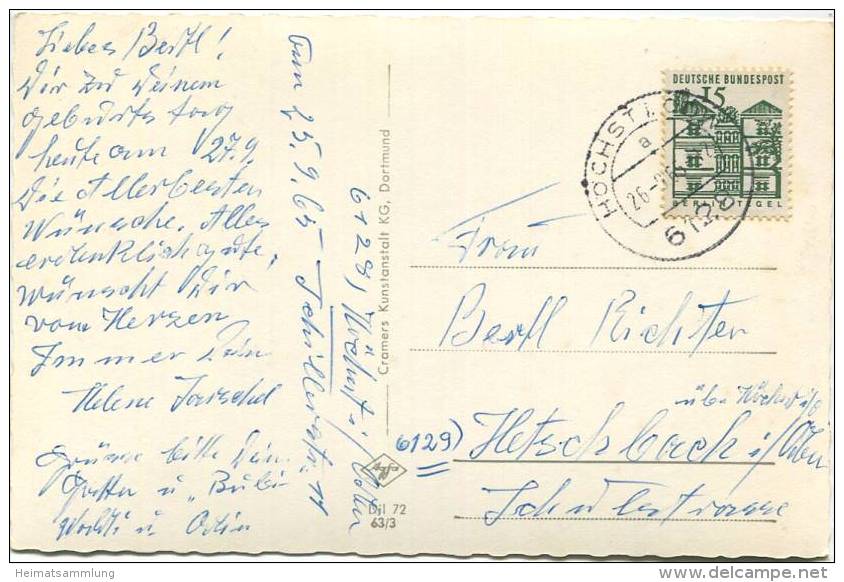 Liebes Bertl!
Dir zu Deinem
Geburtstag
heute am 27.9.
Die Allerbesten
Wünsche. Alles
erdenklich gute,
wünscht Dir
vom Herzen
Immer Dein
Helene
Grüsse bitte Dein
Gatten u. "Bubi"
u.
vom 25.9.65 Schillerstr. 11
6128) Höchst i/Odw
Cramers Kunstanstalt KG, Dortmund
Djl 72
63/3
DEUTSCHE BUNDESPOST
15
BERLIN TEGEL
HÖCHST I. ODW
a
26.-9.65
6129
Frau
Bertl Richter
über Höchst i/O
6129) Hetschbach i/Oden
Schulstrasse
Heimatsammlung
delcampe.net